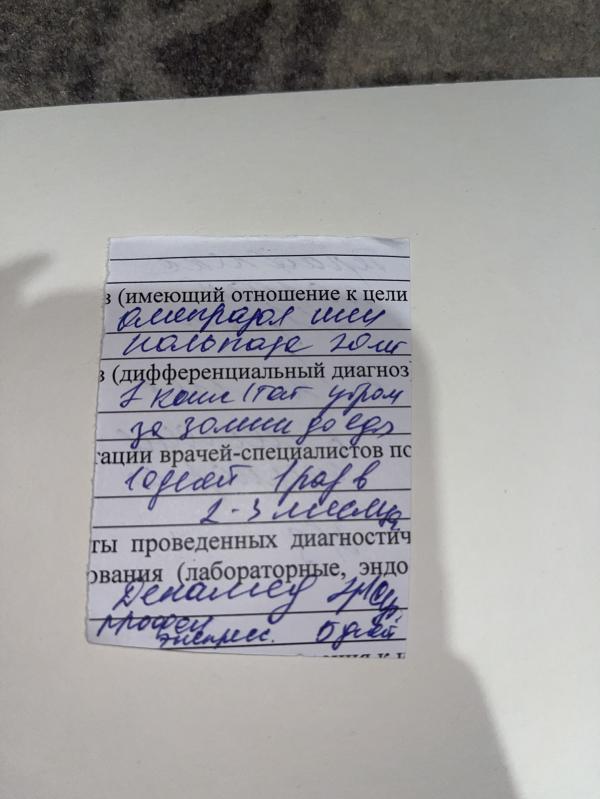 з (имеющий отношение к цели
омепразол или
нольпаза 20мг
з (дифференциальный диагноз
1 капс 1таб утром
за 30мин до еды
тации врачей-специалистов по
10дней 1раз в
2-3 месяца
ты проведенных диагностич
ования (лабораторные, эндо
экспресс. 5 дней